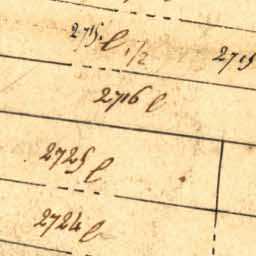 275. l. 1/2
2716 l
2725 l
2724 l